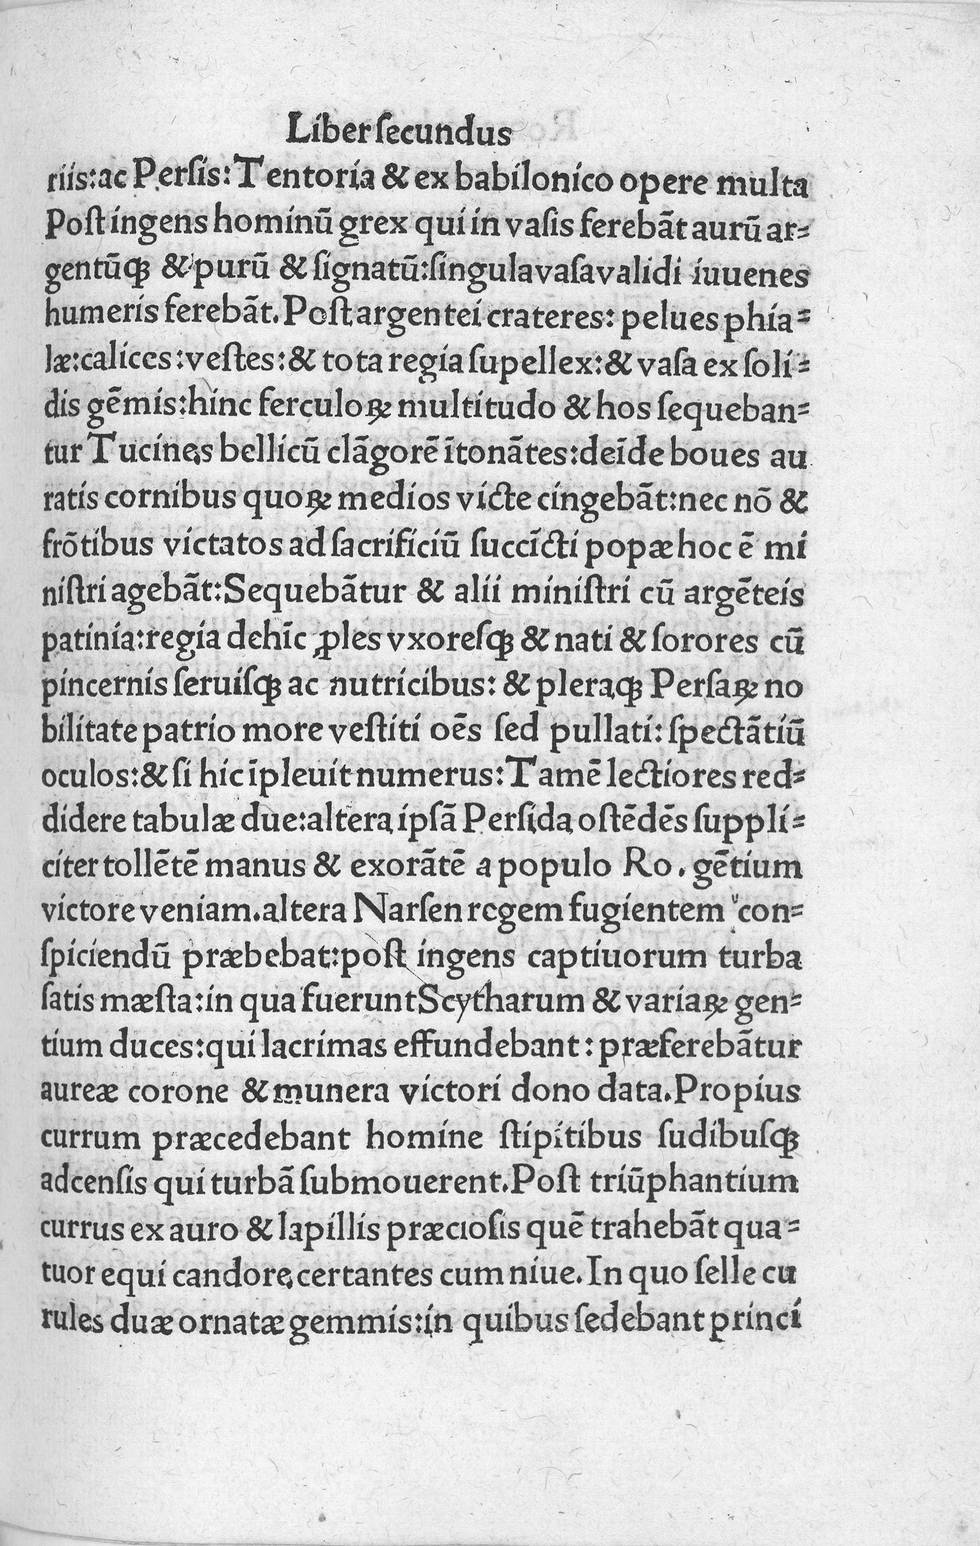 Liber ſecundus
riis:ac Perſis:Tentoria & ex babilonico opere multa
Poſt ingens hominū grex qui in vaſis ferebāt aurū ar⸗
gentūqꝫ & purū & ſignatū:ſingula vaſa validi iuuenes
humeris ferebāt.Poſt argentei crateres:pelues phia⸗
læ:calices:veſtes:& tota regia ſupellex:& vaſa ex ſoli⸗
dis gēmis:hinc ferculoꝝ multitudo & hos ſequeban⸗
tur Tucines bellicū clāgorē ītonātes:deīde boues au
ratis cornibus quoꝝ medios victe cingebāt:nec nō &
frōtibus victatos ad ſacrificiū ſuccīcti popæ hoc ē mi
niſtri agebāt:Sequebātur & alii miniſtri cū argēteis
patinia:regia dehīc ꝓles vxoreſqꝫ & nati & ſorores cū
pincernis ſeruiſqꝫ ac nutricibus:& pleraqꝫ Perſaꝝ no
bilitate patrio more veſtiti oēs ſed pullati:ſpectātiū
oculos:& ſi hic īpleuit numerus:Tamē lectiores red⸗
didere tabulæ due:altera ipſā Perſida oſtēdēs ſuppli⸗
citer tollētē manus & exorātē a populo Ro. gētium
victore veniam.altera Narſen regem fugientem con⸗
ſpiciendū præbebat:poſt ingens captiuorum turba
ſatis mæſta:in qua fuerunt Scytharum & variaꝝ gen⸗
tium duces:qui lacrimas effundebant:præferebātur
aureæ corone & munera victori dono data.Propius
currum præcedebant homine ſtipitibus ſudibuſqꝫ
adcenſis qui turbā ſubmouerent.Poſt triūphantium
currus ex auro & lapillis præcioſis quē trahebāt qua⸗
tuor equi candore certantes cum niue.In quo ſelle cu
rules duæ ornatæ gemmis:in quibus ſedebant princi